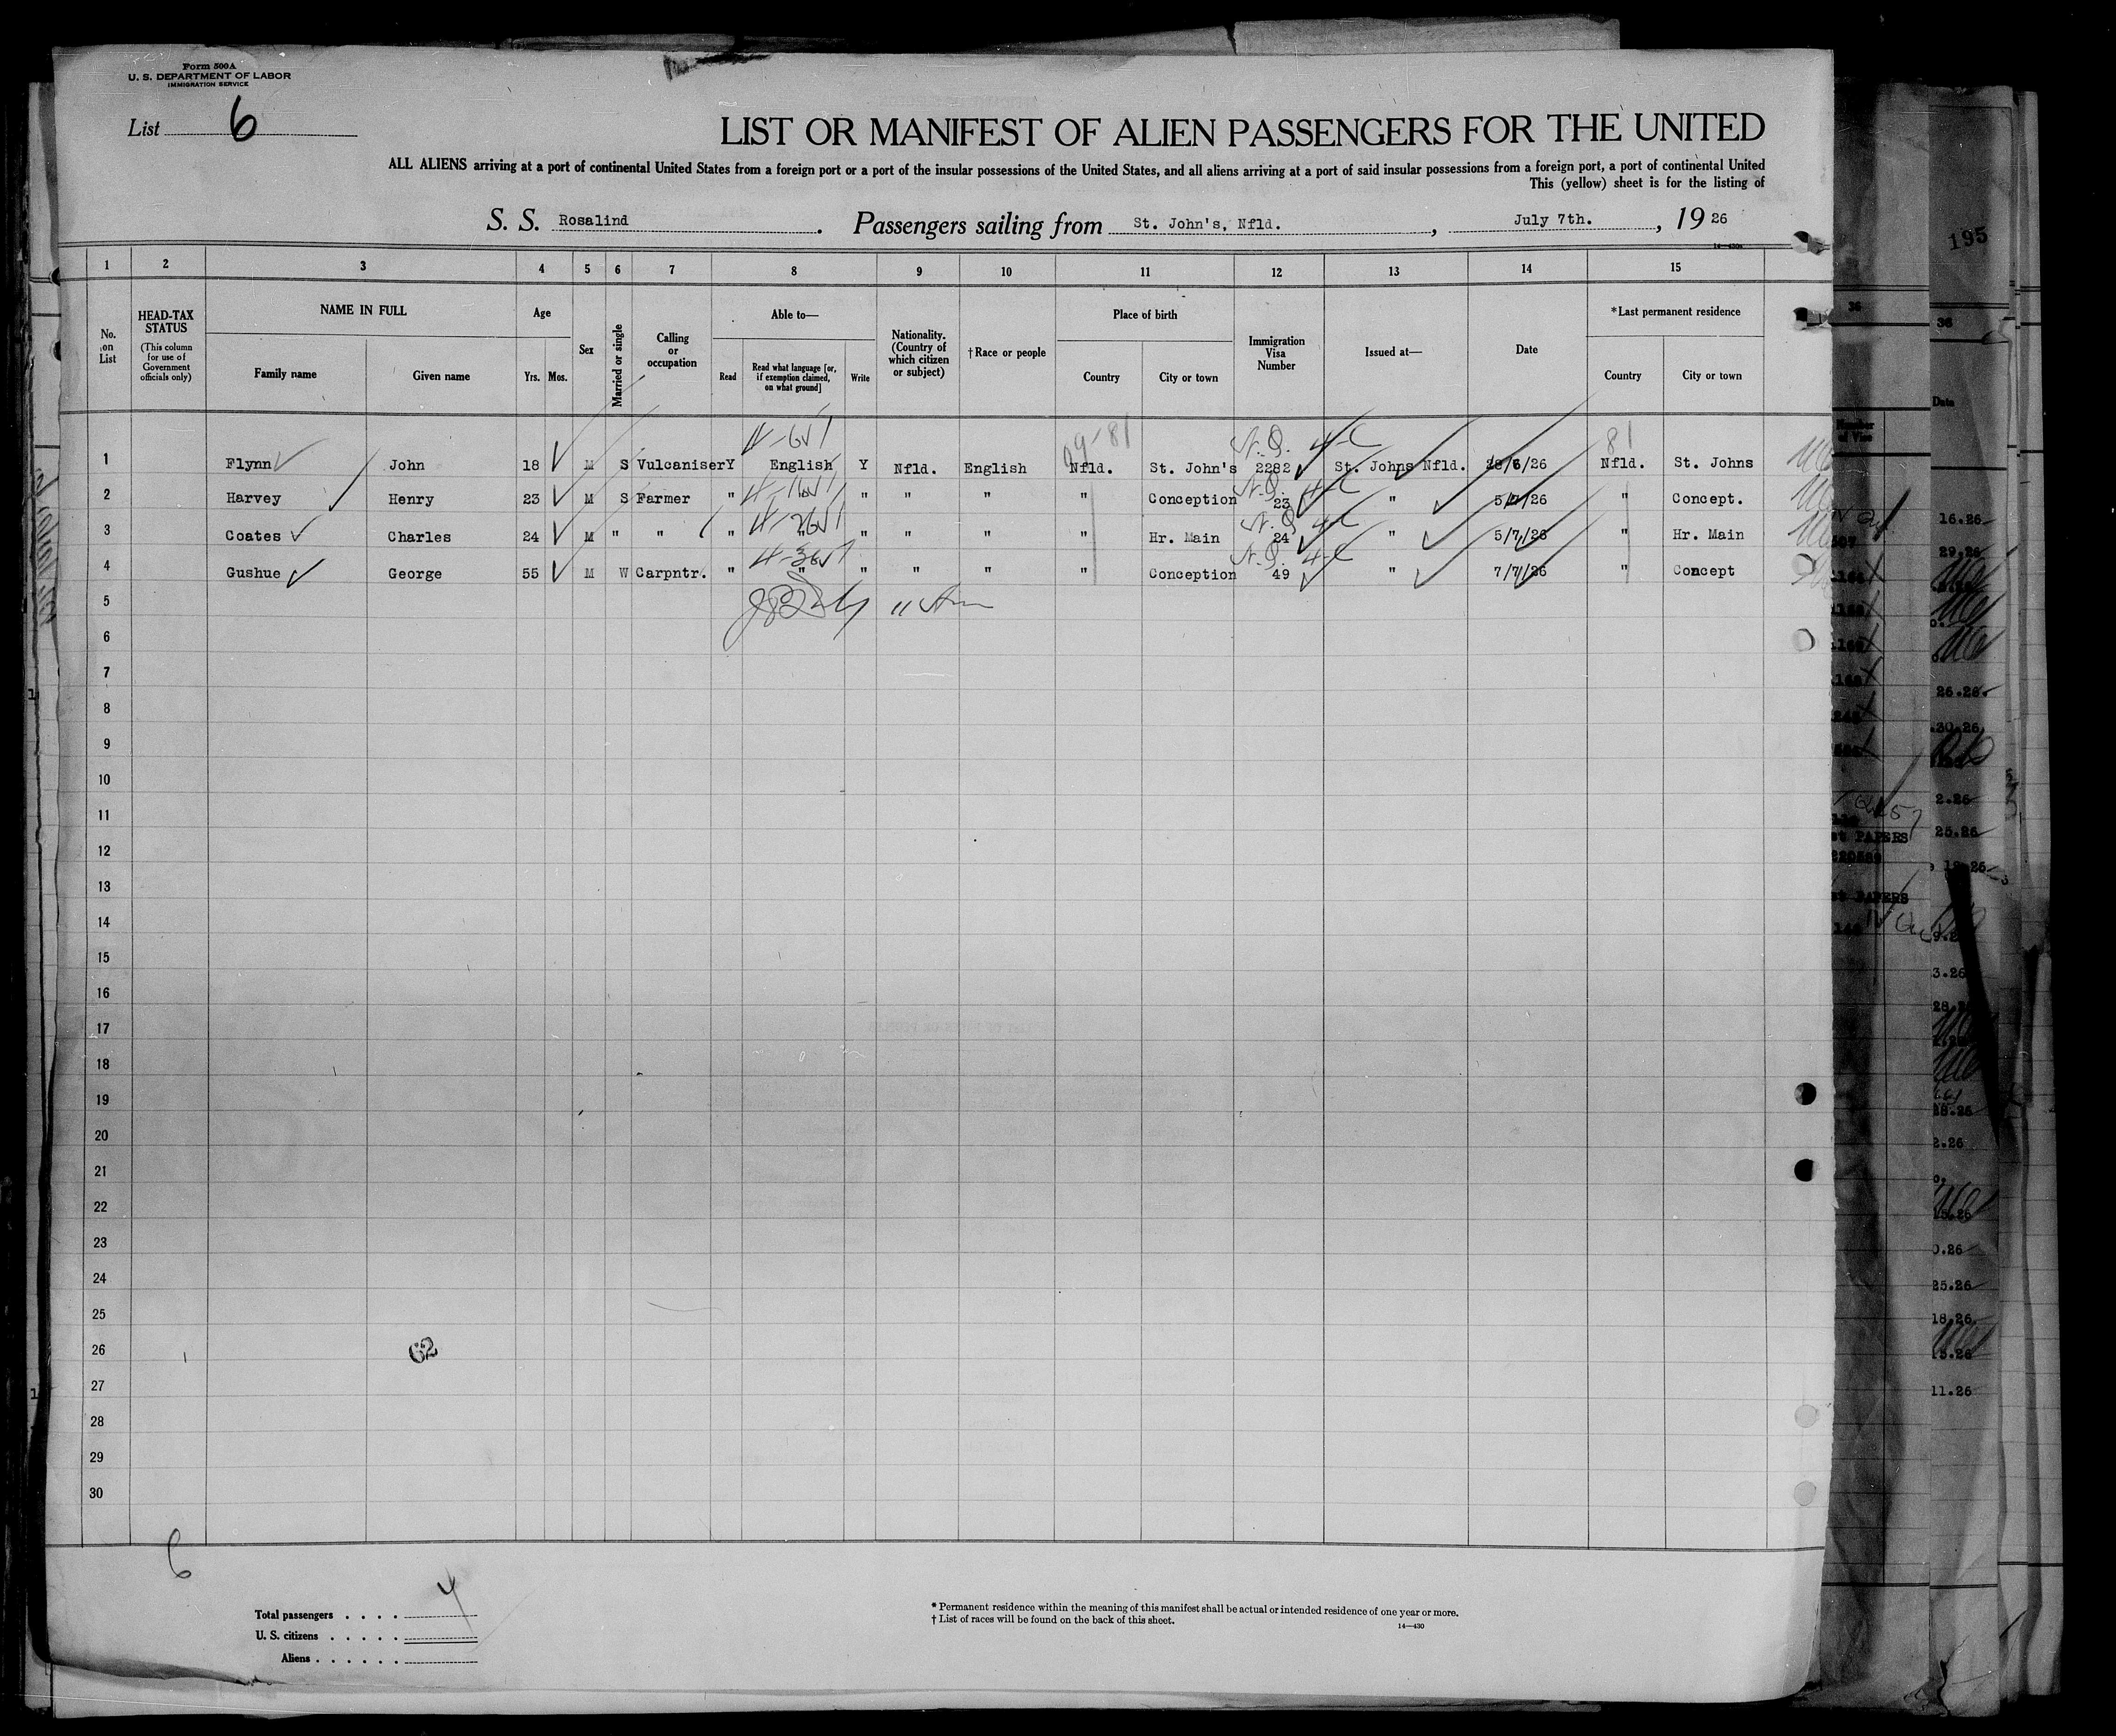 Form 500A
U. S. DEPARTMENT OF LABOR
IMMIGRATION SERVICE
List 6
LIST OR MANIFEST OF ALIEN PASSENGERS FOR THE UNITED
ALL ALIENS arriving at a port of continental United States from a foreign port or a port of the insular possessions of the United States, and all aliens arriving at a port of said insular possessions from a foreign port, a port of continental United
This (yellow) sheet is for the listing of
S. S. Rosalind. Passengers sailing from St. John's, Nfld., July 7th., 19 26
195
1 2 3 4 5 6 7 8 9 10 11 12 13 14 15
No. on List
HEAD-TAX STATUS (This column for use of Government officials only)
NAME IN FULL
Family name
Given name
Age
Yrs. Mos.
Sex
Married or single
Calling or occupation
Able to—
Read
Read what language [or, if exemption claimed, on what ground]
Write
Nationality. (Country of which citizen or subject)
†Race or people
Place of birth
Country
City or town
Immigration Visa Number
Issued at—
Date
*Last permanent residence
Country
City or town
1 Flynn John 18 M S Vulcaniser Y English Y Nfld. English Nfld. St. John's 2282 St. Johns Nfld. 28/6/26 Nfld. St. Johns
2 Harvey Henry 23 M S Farmer " " " " " Conception 23 " 5/7/26 " Concept.
3 Coates Charles 24 M " " " " " " " " Hr. Main 24 " 5/7/26 " Hr. Main
4 Gushue George 55 M W Carpntr. " " " " " " Conception 49 " 7/7/26 " Concept
5
6
7
8
9
10
11
12
13
14
15
16
17
18
19
20
21
22
23
24
25
26 62
27
28
29
30
6
Total passengers . . . . 4
U. S. citizens . . . . .
Aliens . . . . . .
* Permanent residence within the meaning of this manifest shall be actual or intended residence of one year or more.
† List of races will be found on the back of this sheet.
14—430
36
36
Date
Number of Visa
16.26
29.26
26.26.
30.26
2.26
25.26
PAPERS
PAPERS
3.26
2.26
0.26
25.26
18.26
15.26
11.26